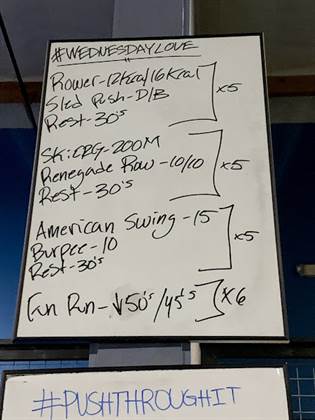 #WEDNESDAYLOVE
Rower-12Kcal/16Kcal
Sled Push-D/B
Rest-30's
x5
Ski ERG-200M
Renegade Row-10/10
Rest-30's
x5
American Swing-15
Burpee-10
Rest-30's
x5
Fun Run-↓50's/45's
x6
#PUSHTHROUGHIT